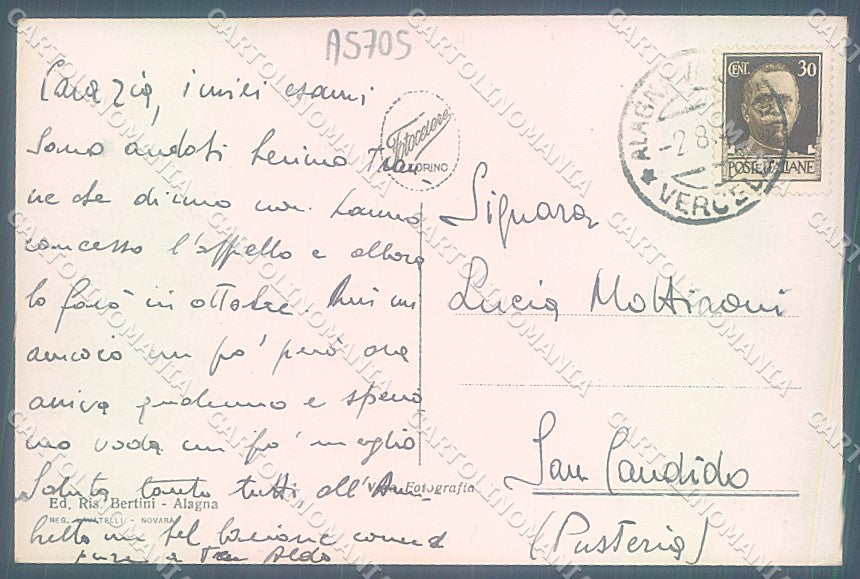 A5705
Cara zia, i miei esami
sono andati benino tran
ne che di uno non hanno
concesso l'appello e allora
lo farò in ottobre. Qui mi
annoio un po' però ora
arriva qualcuno e speria
mo vada un po' meglio
Saluta tanto tutti, all'
un bel bacione come
pure a Aldo
Fotocelere
TORINO
Vera Fotografia
Ed. Ris. Bertini - Alagna
NEG. LAVATELLI - NOVARA
ALAGNA
-2.8.
VERCELLI
CENT. 30
POSTE ITALIANE
Signora
Lucia Mottironi
San Candido
(Pusteria)
CARTOLINOMANIA